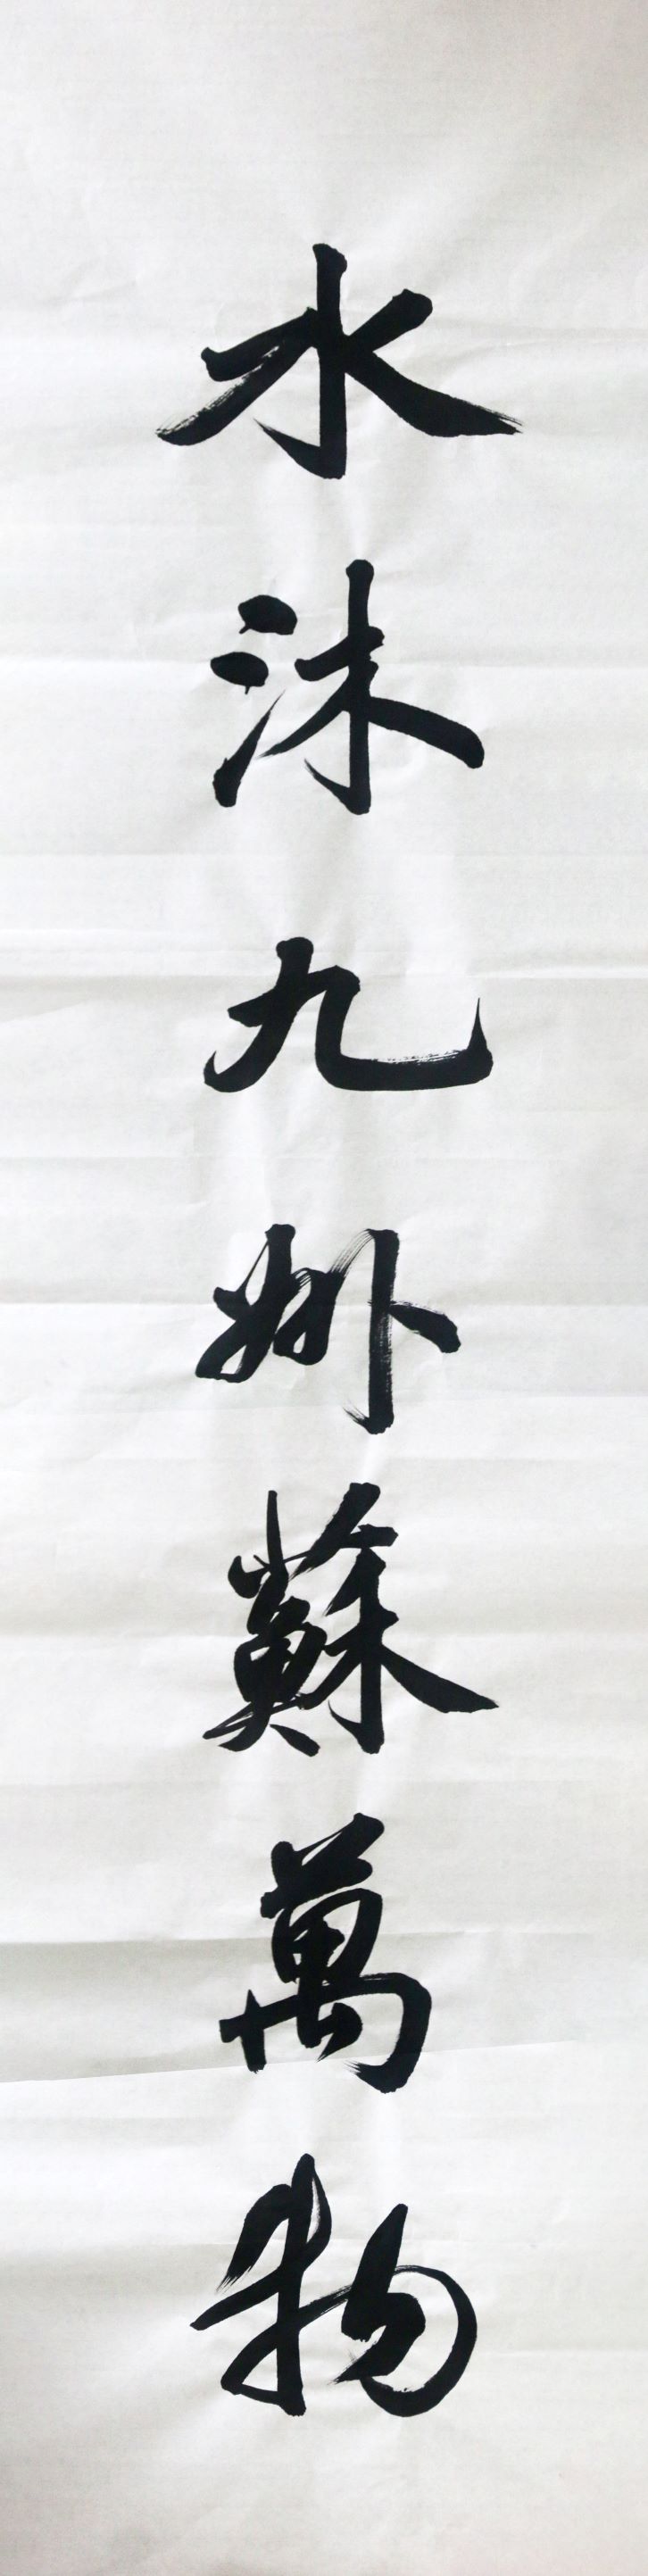 水沐九州蘇萬物